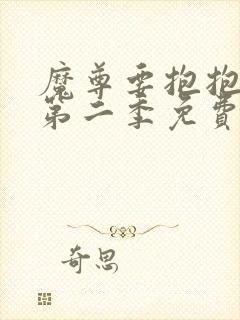 魔尊要抱抱
第二季免费
奇思